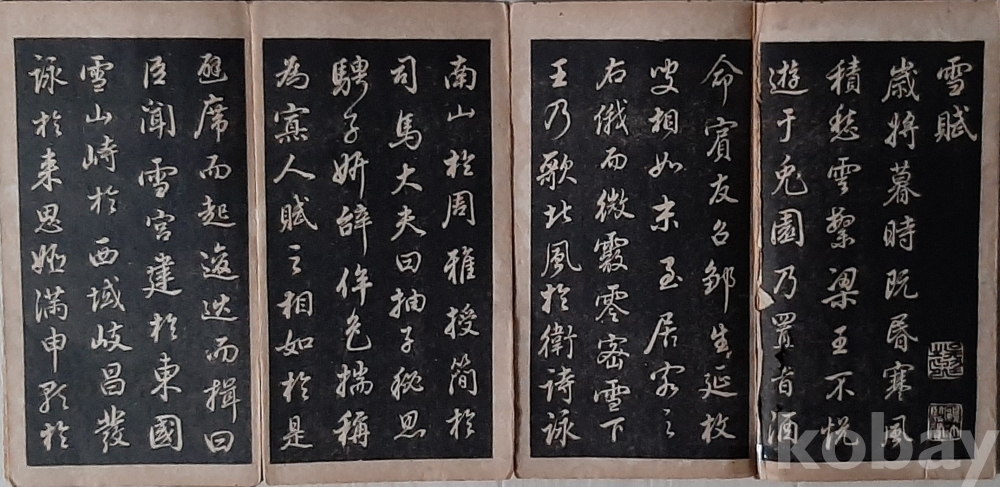 雪賦
歲將暮時既昏寒風
積愁雲繁梁王不悅
遊于兔園乃置旨酒
命賓友召鄒生延枚
叟相如末至居客之
右俄而微霰零密雪下
王乃歌北風於衛詩詠
南山於周雅授簡於
司馬大夫曰抽子秘思
騁子妍辭侔色揣稱
為寡人賦之相如於是
避席而起逡巡而揖曰
臣聞雪宮建於東國
雪山峙於西域岐昌發
詠於來思姬滿申歌於
kobay